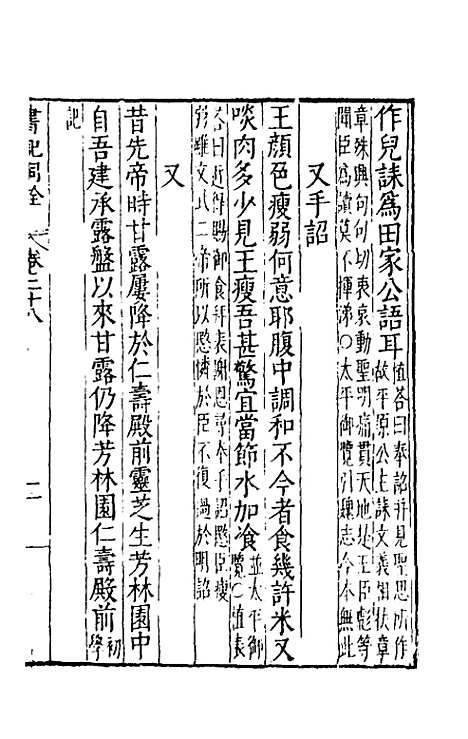 作兒誄為田家公語耳植答曰奉詔并見聖思所作故平原公主誄文義相扶章
章殊興句句切哀動聖明痛貫天地楚王臣彪等聞臣為讀莫不揮涕○太平御覽引魏志今本無此
又手詔
王顏色瘦弱何意耶腹中調和不今者食幾許米又
啖肉多少見王瘦吾甚驚宜當節水加飡並太平御覽○植表
答曰近得賜御食拜表謝恩尋奉手詔愍臣瘦弱雖文武二帝所以愍憐於臣不復過於明詔
又
昔先帝時甘露屢降於仁壽殿前靈芝生芳林園中
自吾建承露盤以來甘露仍降芳林園仁壽殿前初學
記
書記洞詮 卷二十八 二